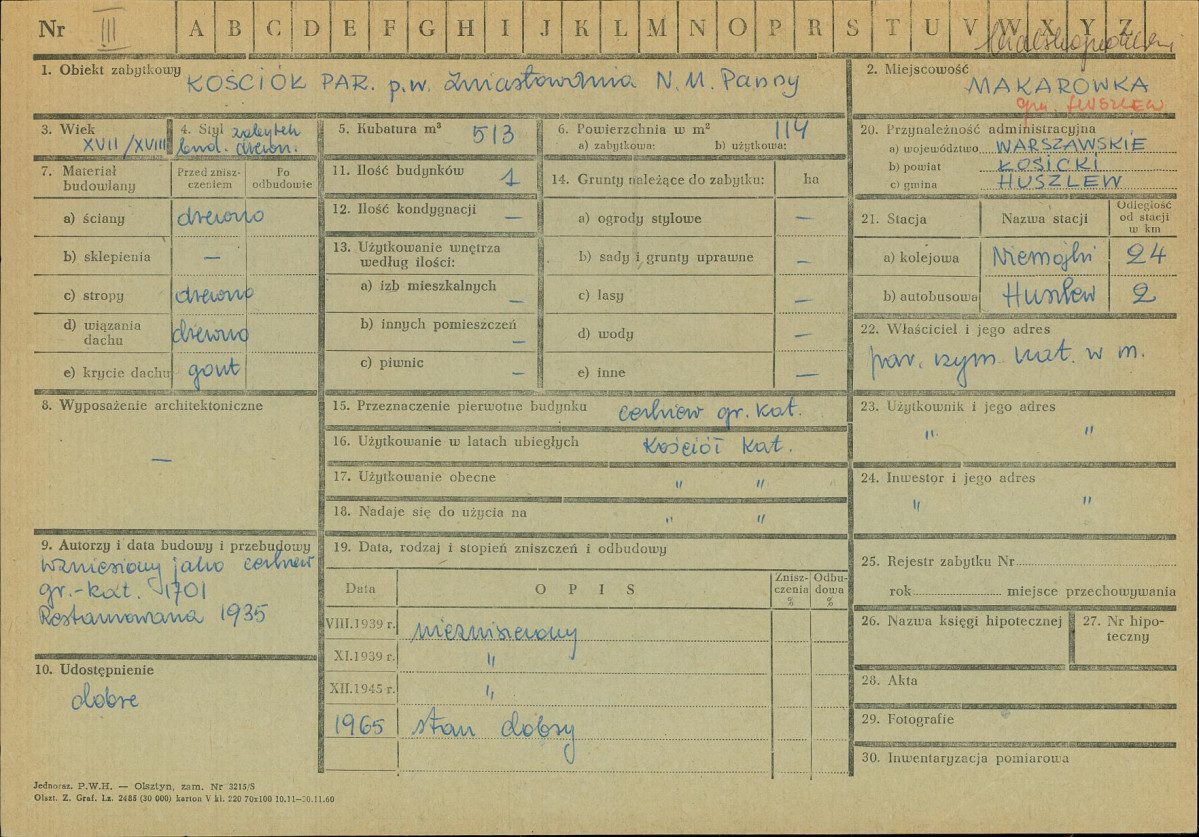 Nr III A B C D E F G H I J K L M N O P R S T U V W X Y Z
1. Obiekt zabytkowy KOŚCIÓŁ PAR. p.w. Zwiastowania N.M. Panny
2. Miejscowość MAKARÓWKA
gm. HUSZLEW
3. Wiek XVII/XVIII
4. Styl zabytek
bud. drewn.
5. Kubatura m³ 513
6. Powierzchnia w m² 114
a) zabytkowa: b) użytkowa:
7. Materiał budowlany
Przed znisz-
czeniem
Po
odbudowie
a) ściany drewno
b) sklepienia —
c) stropy drewno
d) wiązania
dachu drewno
e) krycie dachu gont
8. Wyposażenie architektoniczne
—
9. Autorzy i data budowy i przebudowy
wzniesiony jako cerkiew
gr.-kat. 1701
Restaurowana 1935
10. Udostępnienie
dobre
11. Ilość budynków 1
12. Ilość kondygnacji —
13. Użytkowanie wnętrza
według ilości:
a) izb mieszkalnych —
b) innych pomieszczeń —
c) piwnic —
14. Grunty należące do zabytku: ha
a) ogrody stylowe —
b) sady i grunty uprawne —
c) lasy —
d) wody —
e) inne —
15. Przeznaczenie pierwotne budynku cerkiew gr. kat.
16. Użytkowanie w latach ubiegłych Kościół kat.
17. Użytkowanie obecne " "
18. Nadaje się do użycia na " "
19. Data, rodzaj i stopień zniszczeń i odbudowy
Data O P I S Znisz-
czenia
% Odbu-
dowa
%
VIII.1939 r. niezniszczony
XI.1939 r. "
XII.1945 r. "
1965 stan dobry
20. Przynależność administracyjna
a) województwo WARSZAWSKIE
b) powiat ŁOSICKI
c) gmina HUSZLEW
21. Stacja Nazwa stacji Odległość
od stacji
w km
a) kolejowa Niemojki 24
b) autobusowa Huszlew 2
22. Właściciel i jego adres
par. rzym. kat. w m.
23. Użytkownik i jego adres
" "
24. Inwestor i jego adres
" "
25. Rejestr zabytku Nr
rok miejsce przechowywania
26. Nazwa księgi hipotecznej
27. Nr hipo-
teczny
28. Akta
29. Fotografie
30. Inwentaryzacja pomiarowa
Jednoraz. P.W.H. — Olsztyn, zam. Nr 3215/S
Olszt. Z. Graf. Lz. 2485 (30 000) karton V kl. 220 70x100 10.11—30.11.60